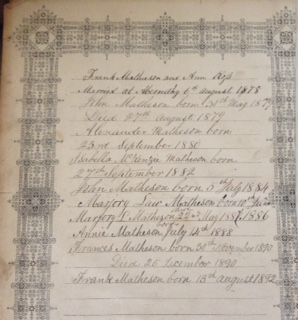 Frank Matheson and Ann
Married at Abernethy 6th August 1878
John Matheson born 30th May 1879
Died 27th August 1879
Alexander Matheson born
23rd September 1880
Isabella McKenzie Matheson born
27th September 1882
John Matheson born 5th July 1884
Marjory Law Matheson born 10th
Marjory L Matheson 22nd May 1886
Annie Matheson July 14th 1888
Frances Matheson born 30th November 1890
Died 26 December 1890
Frank Matheson born 13th August 1892